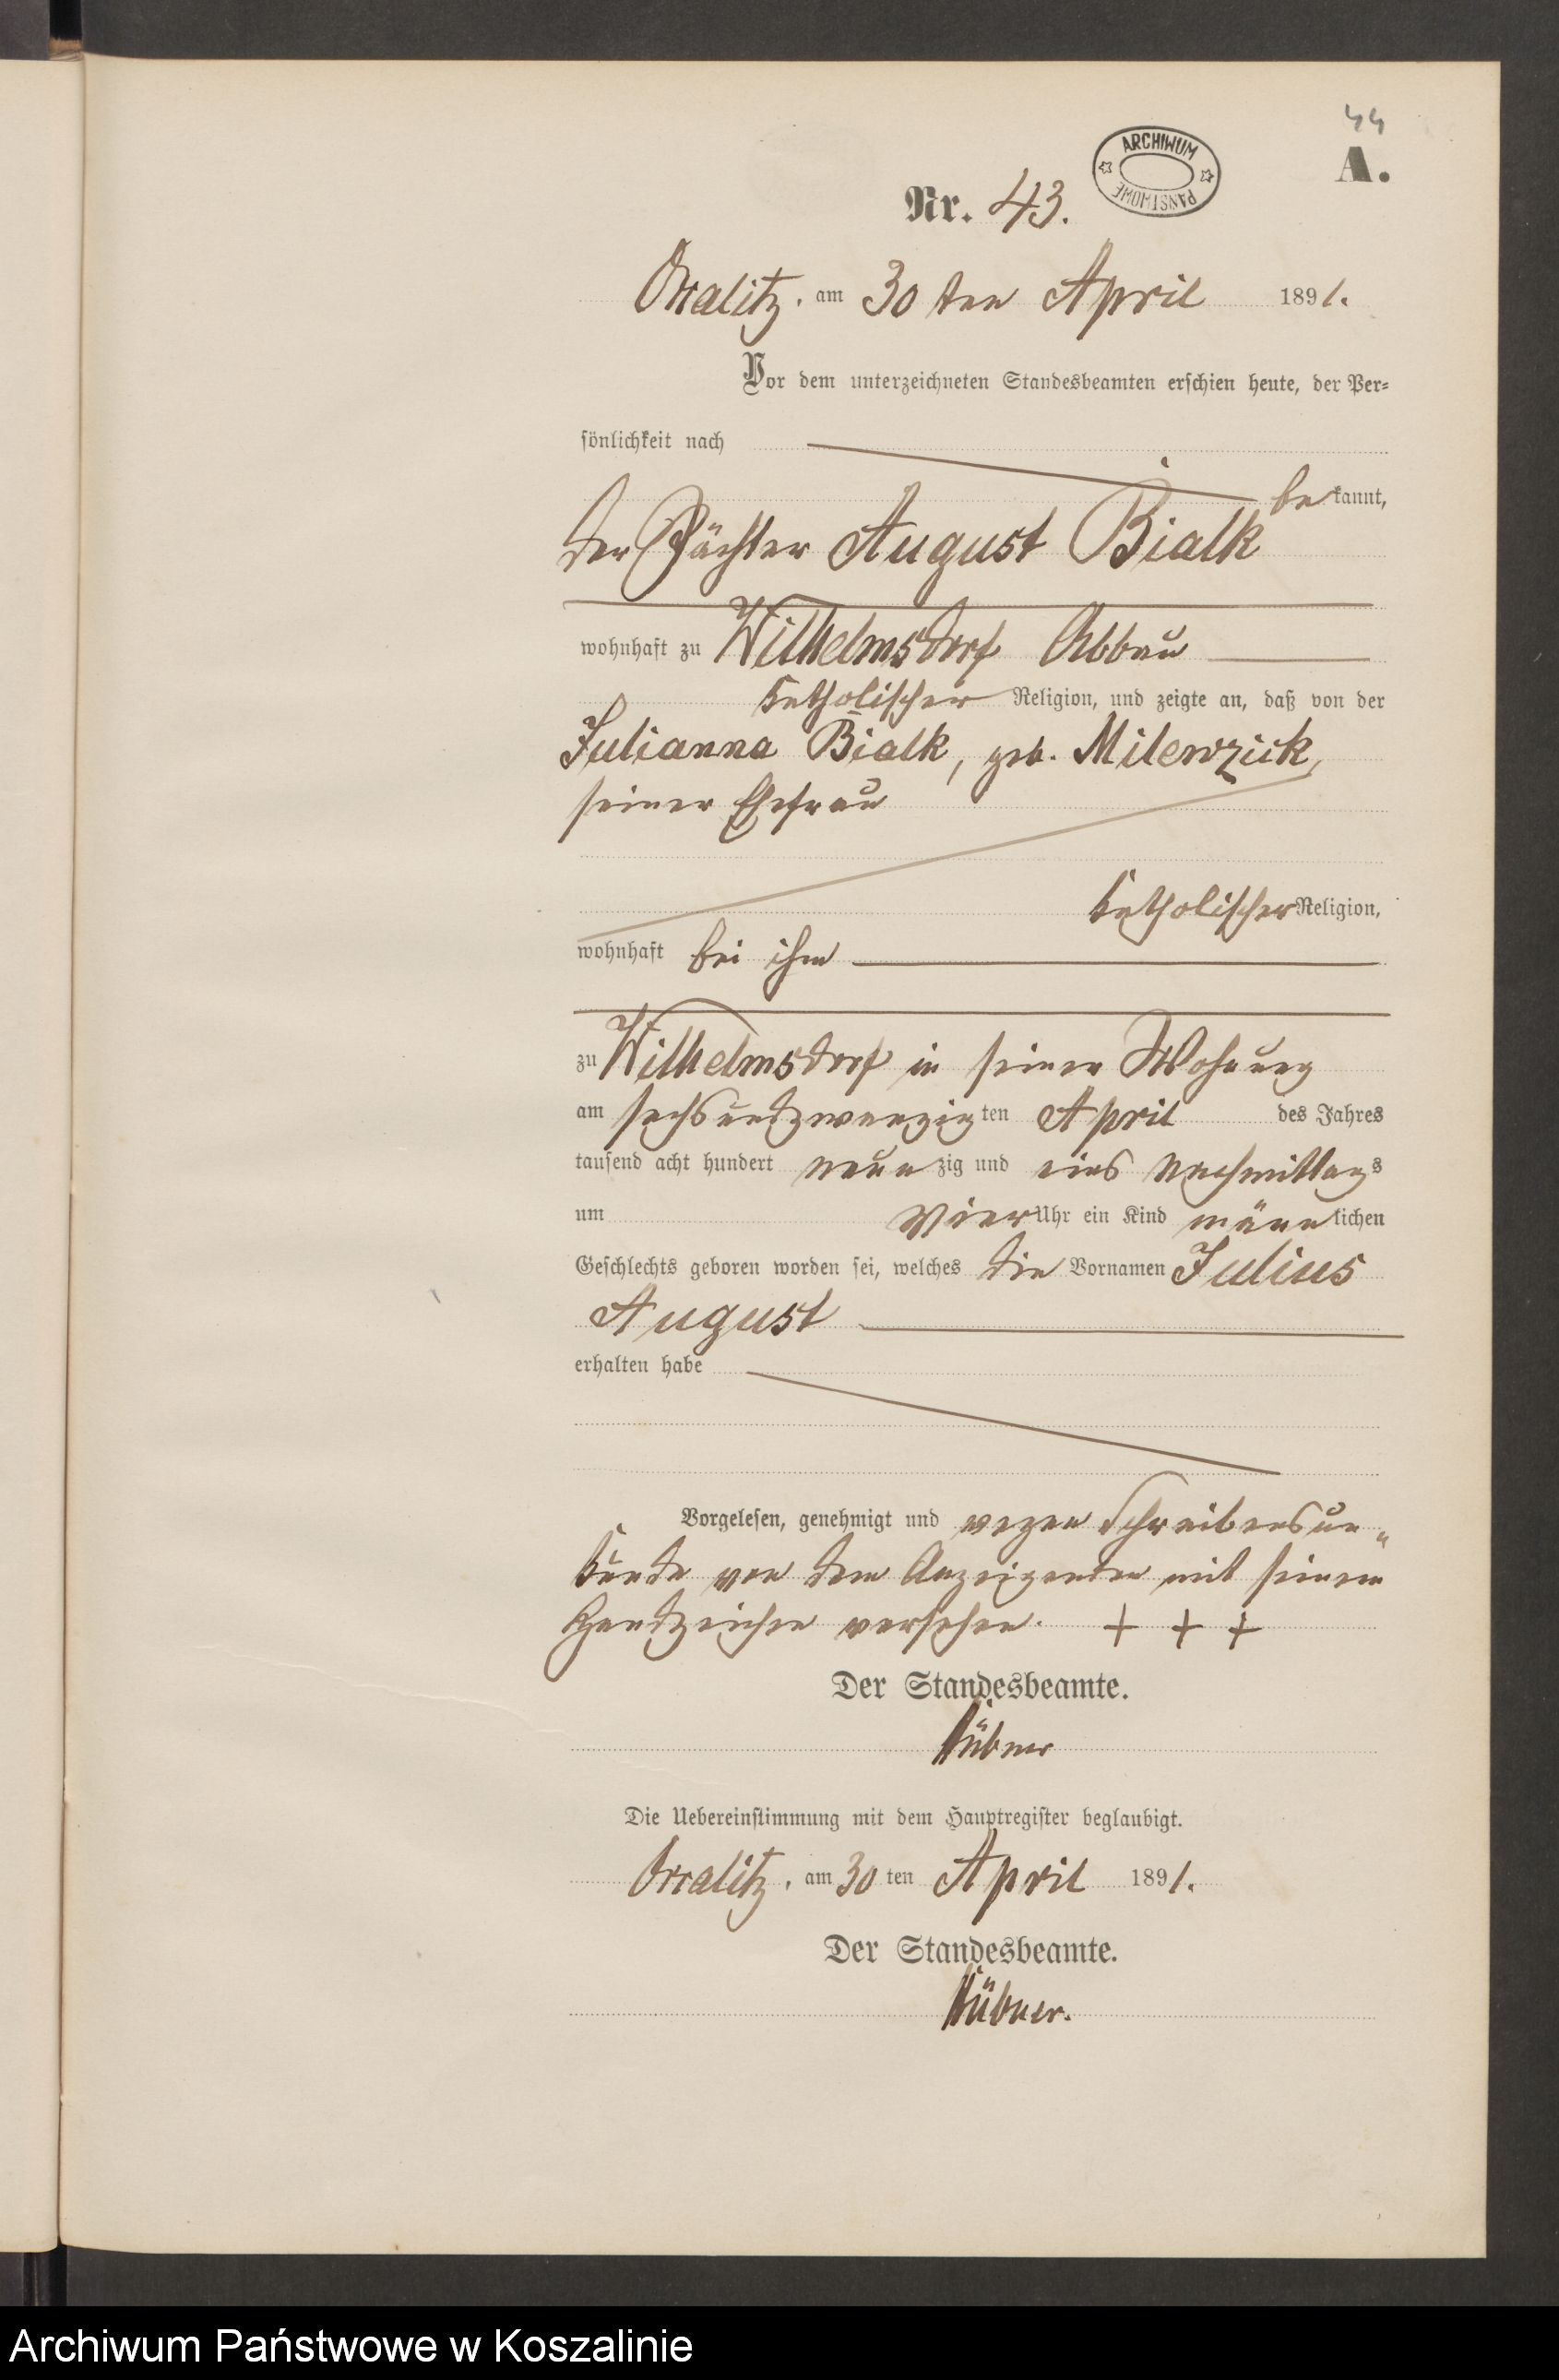 44
A.
ARCHIWUM PAŃSTWOWE
Nr. 43.
am 30 ten April 1891.
Vor dem unterzeichneten Standesbeamten erschien heute, der Per=
sönlichkeit nach
bekannt,
der Pächter August Bialk
wohnhaft zu Wilhelmsdorf Abbau
katholischer Religion, und zeigte an, daß von der
Julianna Bialk, geb. Milewzick,
seiner Ehefrau
katholischer Religion,
wohnhaft bei ihm
zu Wilhelmsdorf in seiner Wohnung
am sechsundzwanzigten April des Jahres
tausend acht hundert neunzig und eins Nachmittags
um vier Uhr ein Kind männlichen
Geschlechts geboren worden sei, welches die Vornamen Julius
August
erhalten habe
Vorgelesen, genehmigt und wegen Schreibensun„
kunde von dem Anzeigenden mit seinem
Handzeichen versehen. + + +
Der Standesbeamte.
Hübner
Die Uebereinstimmung mit dem Hauptregister beglaubigt.
am 30 ten April 1891.
Der Standesbeamte.
Hübner.
Archiwum Państwowe w Koszalinie